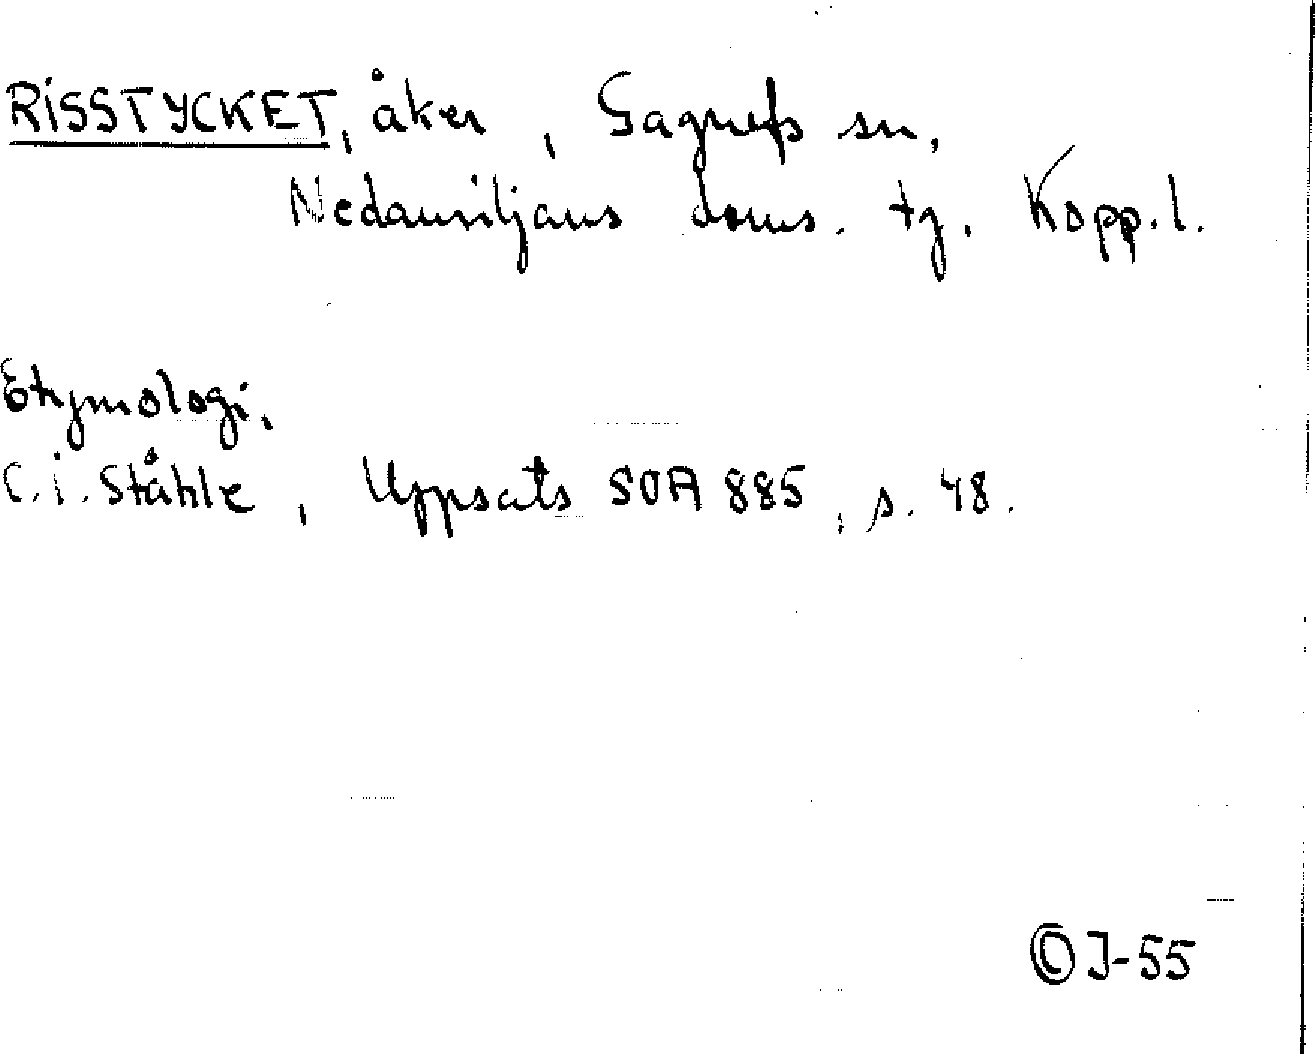 RISSTYCKET, åker, Gagnefs sn,
Nedansiljans doms. tg. Kopp.l.
Etymologi,
C.I. Ståhle, Uppsats SOA 885, s. 48.
© J-55